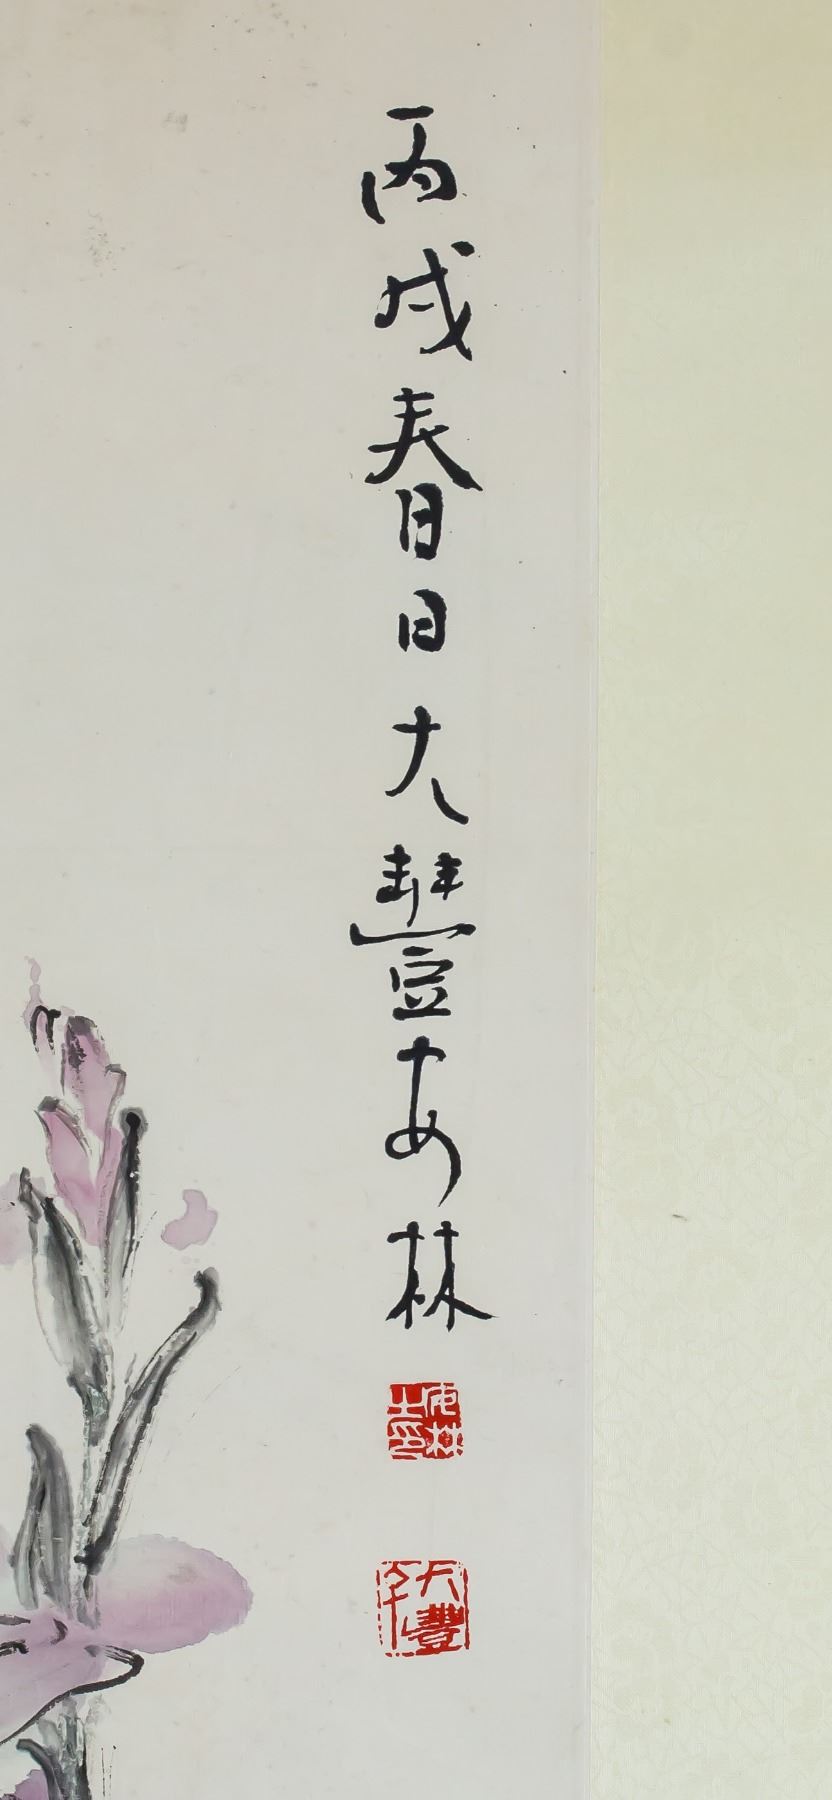 丙戌春日大豐安林
大豐